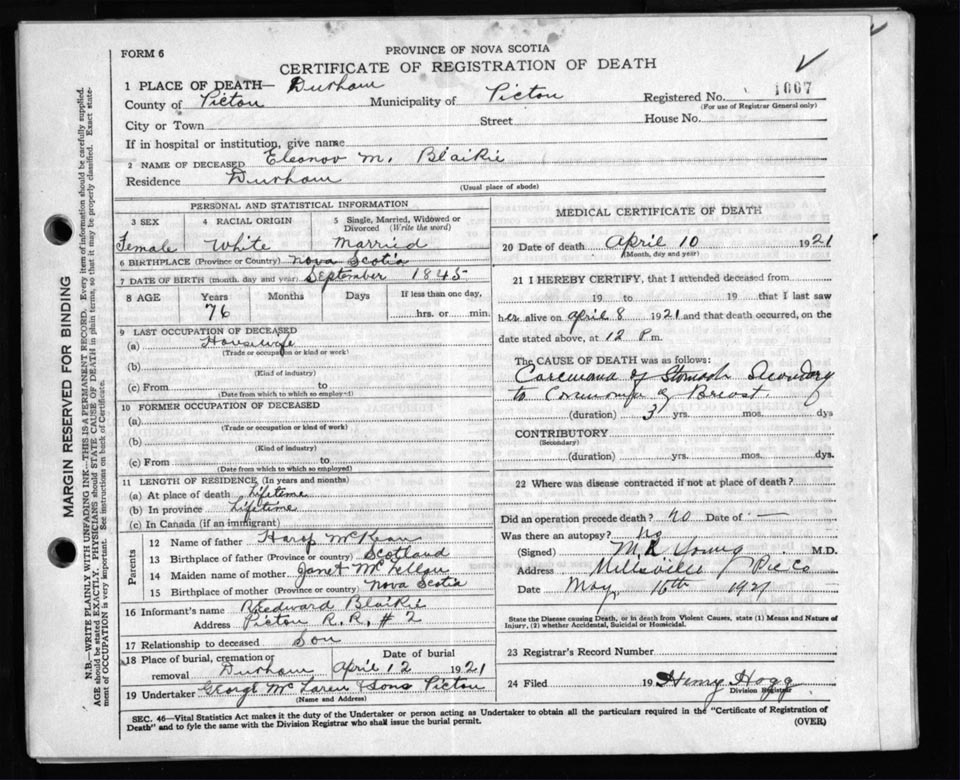 FORM 6
PROVINCE OF NOVA SCOTIA
CERTIFICATE OF REGISTRATION OF DEATH
1 PLACE OF DEATH— Durham
County of Pictou Municipality of Pictou Registered No. 1667
(For use of Registrar General only)
City or Town Street House No.
If in hospital or institution, give name
2 NAME OF DECEASED Eleanor M. Blaikie
Residence Durham
(Usual place of abode)
PERSONAL AND STATISTICAL INFORMATION
3 SEX 4 RACIAL ORIGIN 5 Single, Married, Widowed or Divorced (Write the word)
Female White Married
6 BIRTHPLACE (Province or Country) Nova Scotia
7 DATE OF BIRTH (month, day and year) September 1845
8 AGE Years Months Days If less than one day,
76 hrs. or min.
9 LAST OCCUPATION OF DECEASED
(a) Housewife
(Trade or occupation or kind of work)
(b)
(Kind of industry)
(c) From to
(Date from which to which so employed)
10 FORMER OCCUPATION OF DECEASED
(a)
(Trade or occupation or kind of work)
(b)
(Kind of industry)
(c) From to
(Date from which to which so employed)
11 LENGTH OF RESIDENCE (In years and months)
(a) At place of death Lifetime
(b) In province Lifetime
(c) In Canada (if an immigrant)
Parents
12 Name of father McKean
13 Birthplace of father (Province or country) Scotland
14 Maiden name of mother Janet McLellan
15 Birthplace of mother (Province or country) Nova Scotia
16 Informant's name Blaikie
Address Pictou R.R. # 2
17 Relationship to deceased Son
18 Place of burial, cremation or removal Durham Date of burial April 12 1921
19 Undertaker George McLaren & Sons Pictou
(Name and Address)
MEDICAL CERTIFICATE OF DEATH
20 Date of death April 10 1921
(Month, day and year)
21 I HEREBY CERTIFY, that I attended deceased from
19 to 19 that I last saw
her alive on April 8 1921 and that death occurred, on
date stated above, at 12 P m.
The CAUSE OF DEATH was as follows:
of Stomach Secondary
to of Breast.
(duration) 3 yrs. mos. dys
CONTRIBUTORY
(Secondary)
(duration) yrs. mos. dys.
22 Where was disease contracted if not at place of death?
Did an operation precede death? no Date of —
Was there an autopsy? no
(Signed) Young M.D.
Address Millsville Pic Co
Date May 16th 1921
State the Disease causing Death, or in death from Violent Causes, state (1) Means and Nature of
Injury, (2) whether Accidental, Suicidal or Homicidal.
23 Registrar's Record Number
24 Filed 19 Henry Hogg
Division Registrar
SEC. 46—Vital Statistics Act makes it the duty of the Undertaker or person acting as Undertaker to obtain all the particulars required in the "Certificate of Registration of
Death" and to fyle the same with the Division Registrar who shall issue the burial permit.
(OVER)
MARGIN RESERVED FOR BINDING
N.B.—WRITE PLAINLY WITH UNFADING INK—THIS IS A PERMANENT RECORD. Every item of information should be carefully supplied.
AGE should be stated EXACTLY. PHYSICIANS should STATE CAUSE OF DEATH in plain terms, so that it may be properly classified. Exact state-
ment of OCCUPATION is very important. See instructions on back of Certificate.